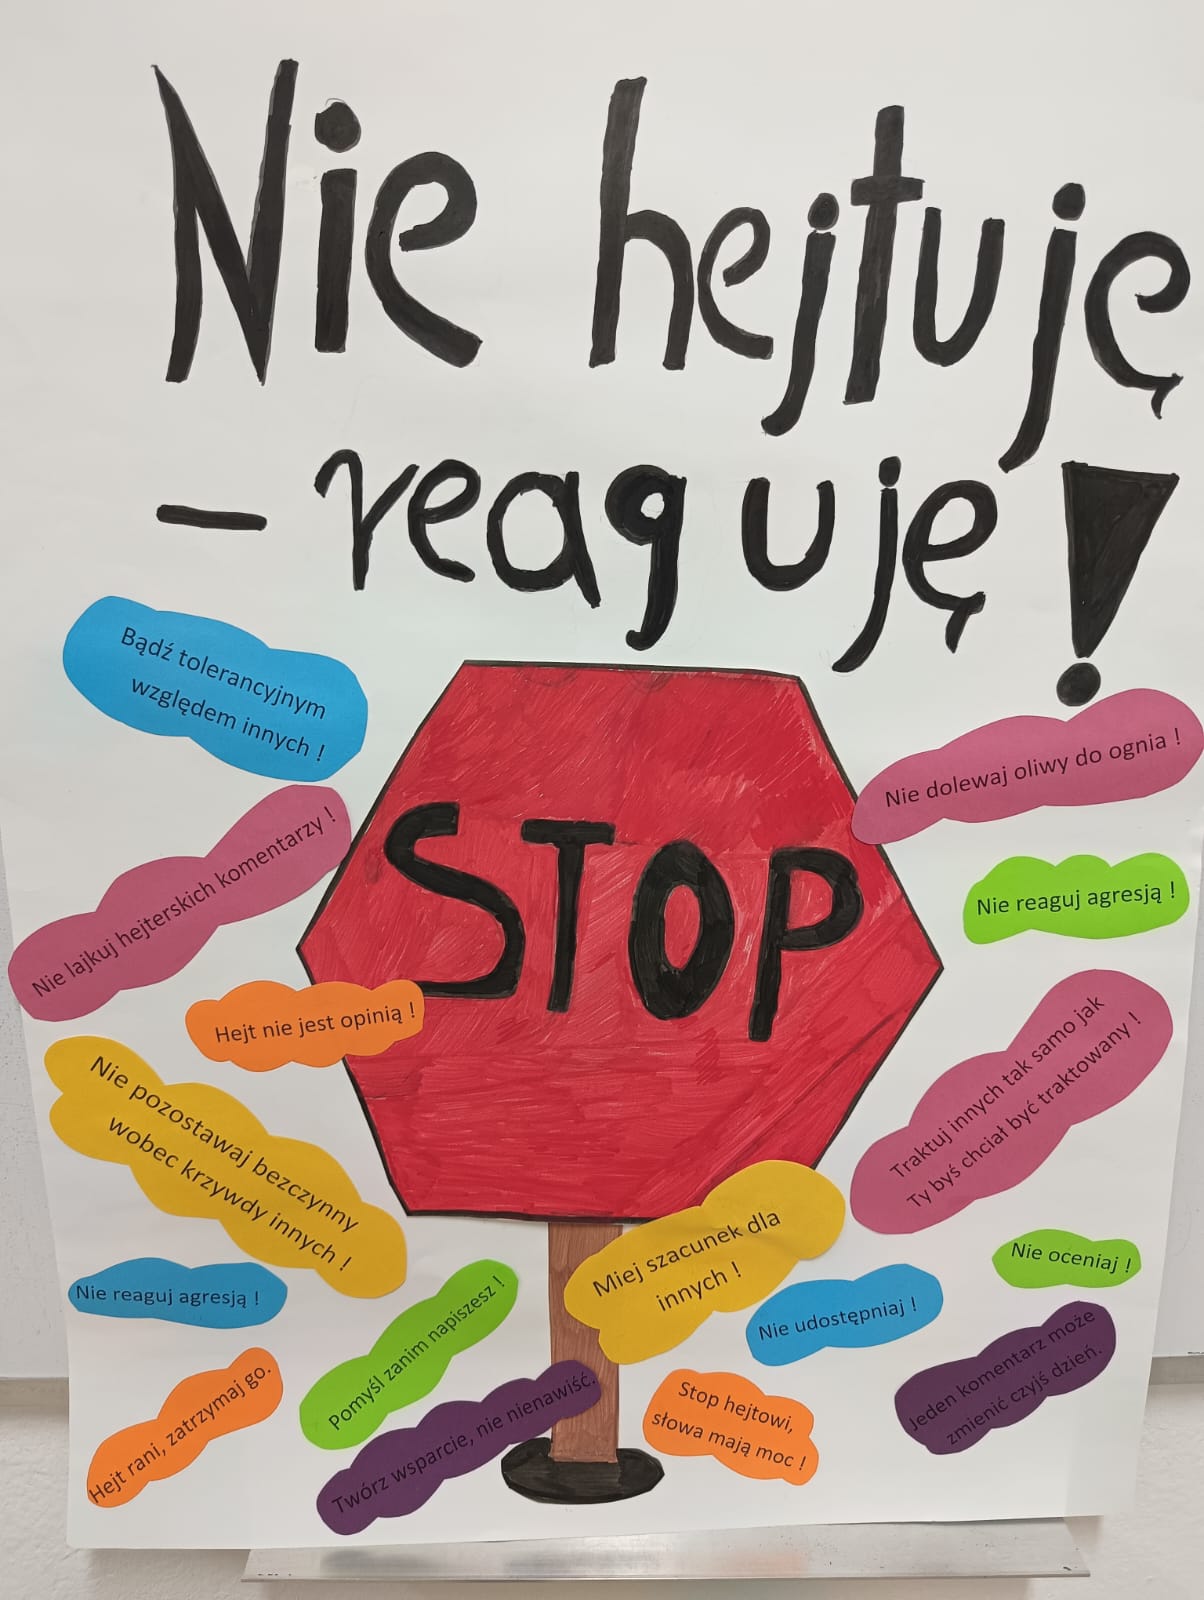 Nie hejtuję
- reaguję!
Bądź tolerancyjnym
względem innych !
Nie dolewaj oliwy do ognia !
STOP
Nie lajkuj hejterskich komentarzy !
Nie reaguj agresją !
Hejt nie jest opinią !
Traktuj innych tak samo jak
Ty byś chciał być traktowany !
Nie pozostawaj bezczynny
wobec krzywdy innych !
Miej szacunek dla
innych !
Nie oceniaj !
Nie reaguj agresją !
Pomyśl zanim napiszesz !
Nie udostępniaj !
Jeden komentarz może
zmienić czyjś dzień.
Hejt rani, zatrzymaj go.
Twórz wsparcie, nie nienawiść.
Stop hejtowi,
słowa mają moc !